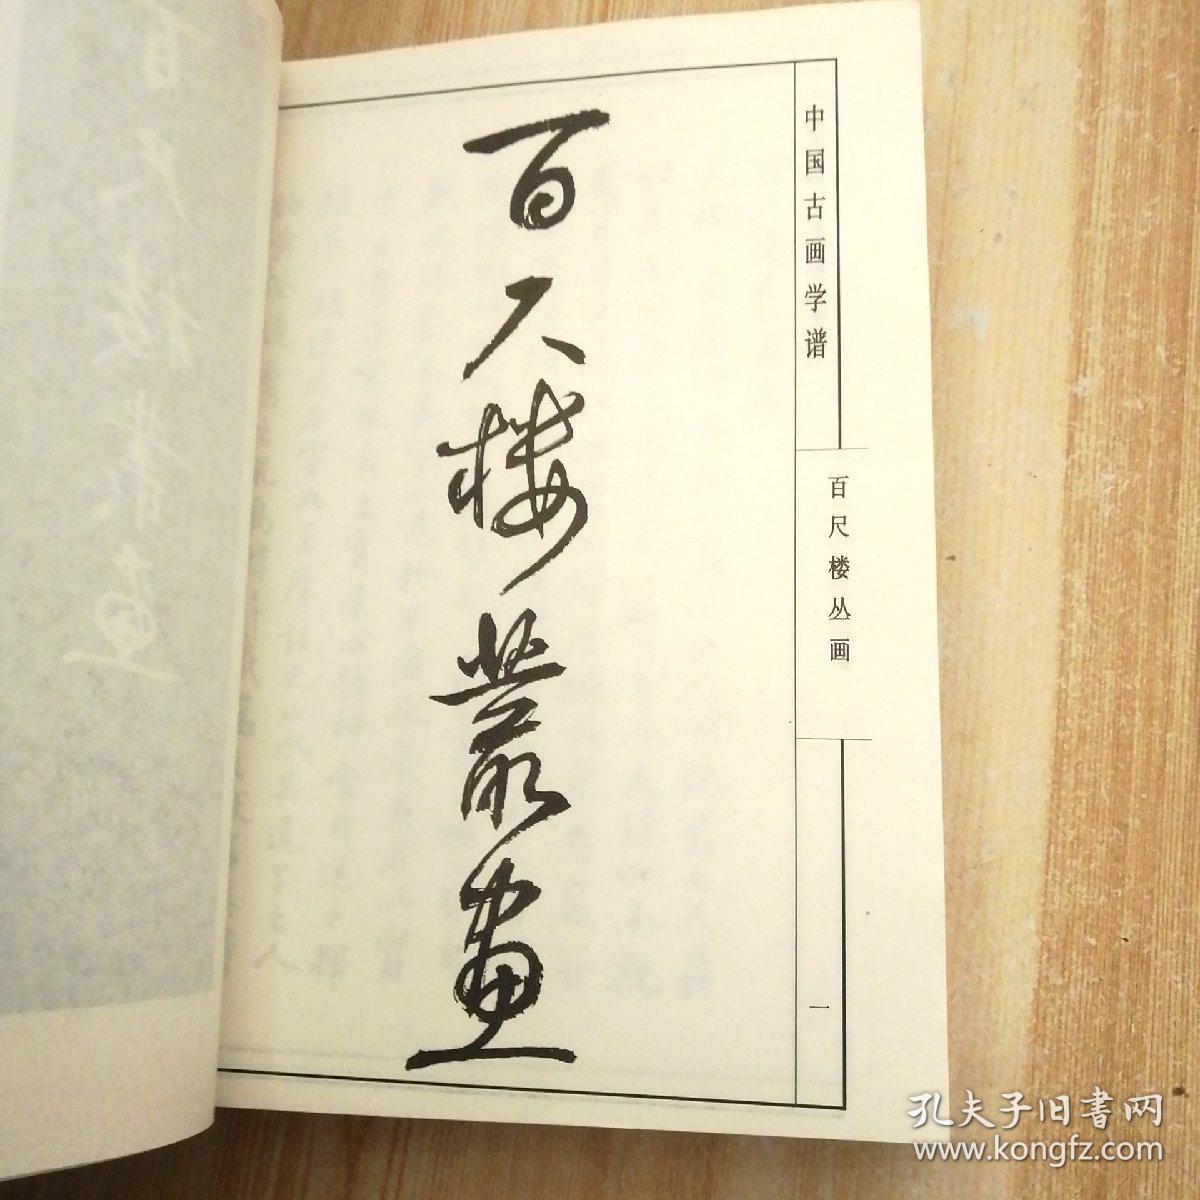 中国古画学谱
百尺楼丛画
一
百尺楼叢畫
孔夫子旧書网
www.kongfz.com